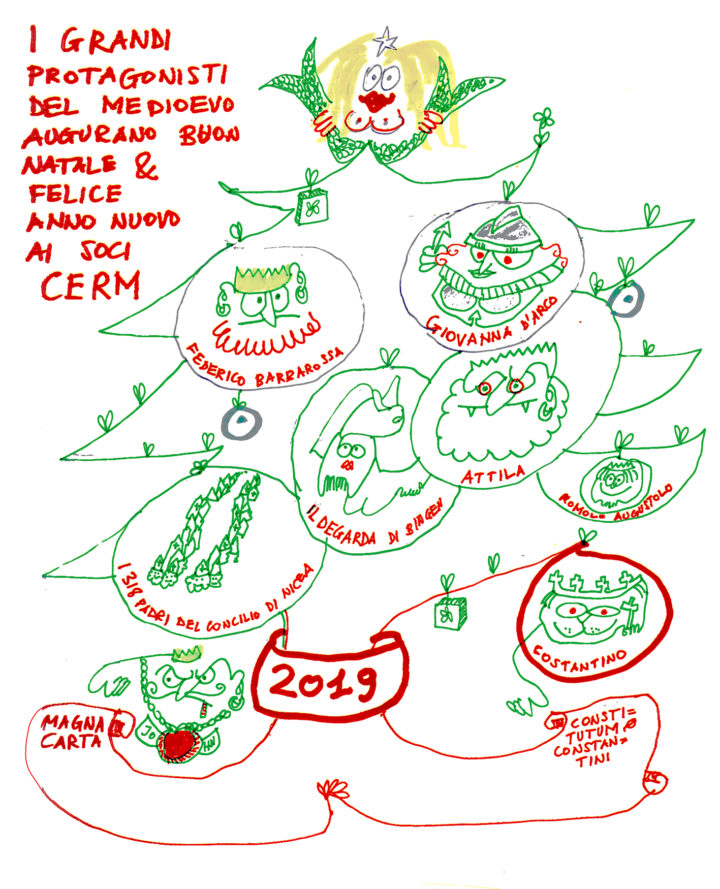 I GRANDI
PROTAGONISTI
DEL MEDIOEVO
AUGURANO BUON
NATALE &
FELICE
ANNO NUOVO
AI SOCI
CERM
FEDERICO BARBAROSSA
GIOVANNA D'ARCO
ATTILA
ILDEGARDA DI BINGEN
ROMOLO AUGUSTOLO
I 318 PADRI DEL CONCILIO DI NICEA
COSTANTINO
2019
MAGNA
CARTA
JO HN
CONSTI=
TUTUM
CONSTAN=
TINI